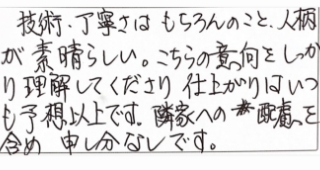 技術、丁寧さはもちろんのこと、人柄
が素晴らしい。こちらの意向をしっか
り理解してくださり仕上がりはいつ
も予想以上です。隣家への配慮を
含め申し分なしです。